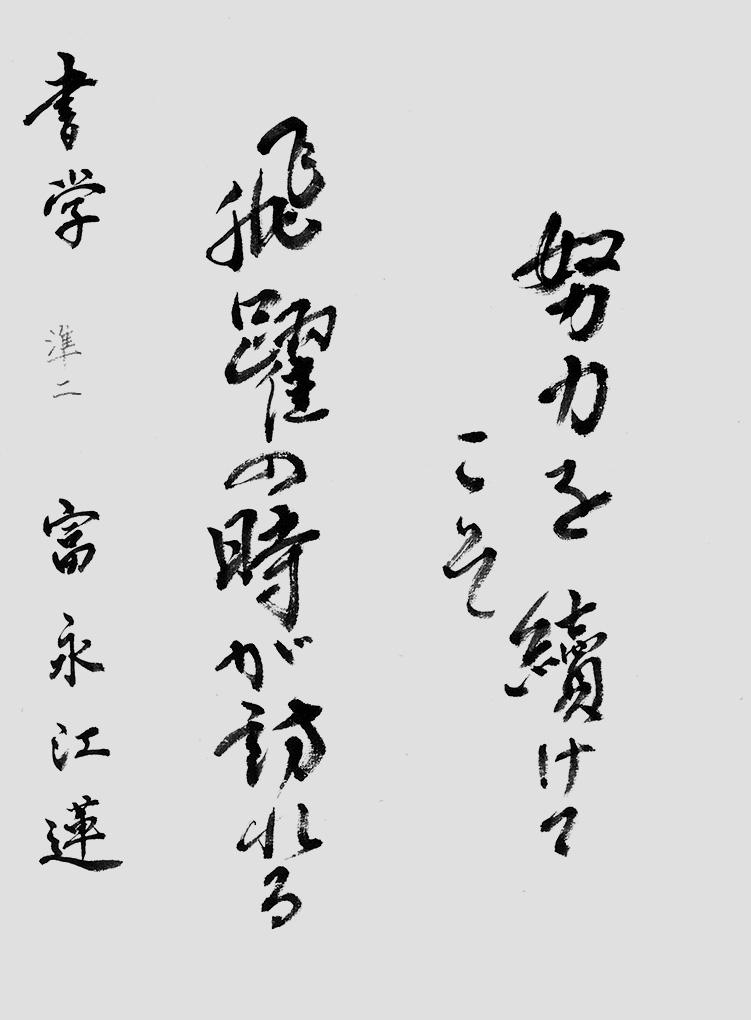 努力を續けて
こそ
飛躍の時が訪れる
書学 準二 富永江蓮